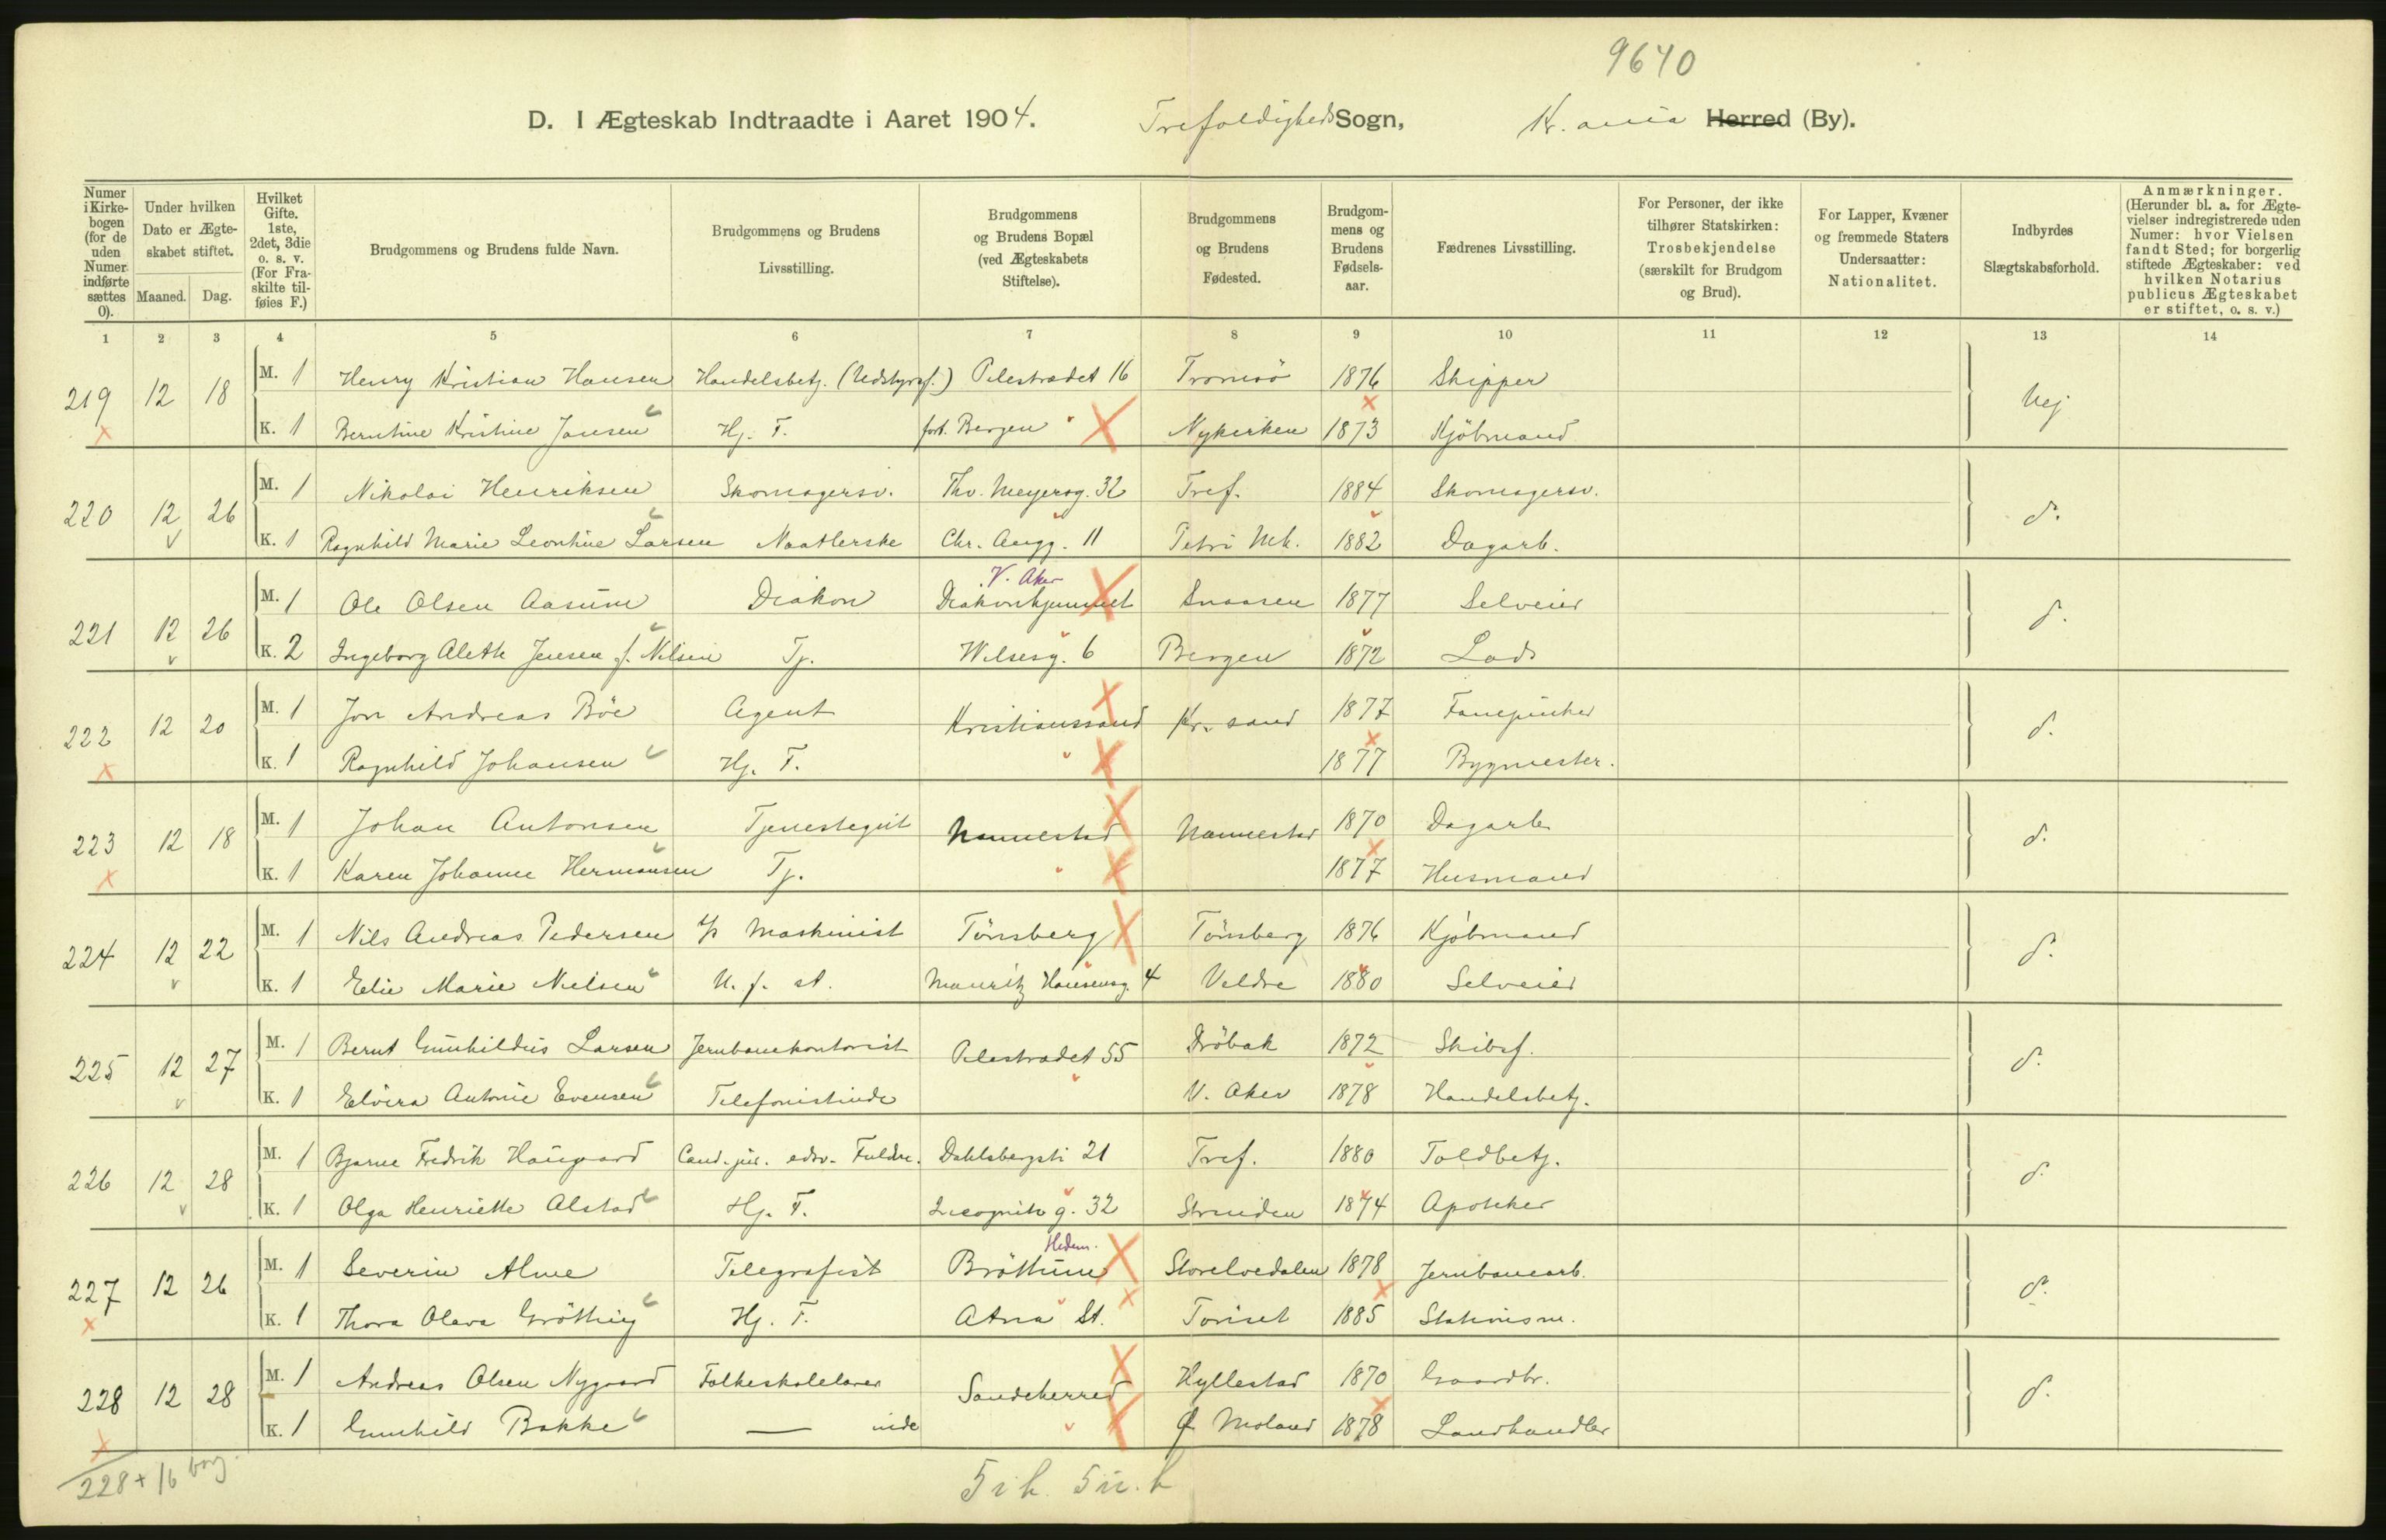 9640
D. I Ægteskab Indtraadte i Aaret 1904. Trefoldigheds Sogn, Kr.ania Herred (By).
Numer i Kirkebogen (for de uden Numer indførte sættes 0).
Under hvilken Dato er Ægteskabet stiftet.
Maaned. Dag.
Hvilket Gifte. 1ste, 2det, 3die o. s. v. (For Fraskilte tilføies F.)
Brudgommens og Brudens fulde Navn.
Brudgommens og Brudens Livsstilling.
Brudgommens og Brudens Bopæl (ved Ægteskabets Stiftelse).
Brudgommens og Brudens Fødested.
Brudgommens og Brudens Fødselsaar.
Fædrenes Livsstilling.
For Personer, der ikke tilhører Statskirken: Trosbekjendelse (særskilt for Brudgom og Brud).
For Lapper, Kvæner og fremmede Staters Undersaatter: Nationalitet.
Indbyrdes Slægtskabsforhold.
Anmærkninger. (Herunder bl. a. for Ægtevielser indregistrerede uden Numer: hvor Vielsen fandt Sted; for borgerlig stiftede Ægteskaber: ved hvilken Notarius publicus Ægteskabet er stiftet, o. s. v.)
1 2 3 4 5 6 7 8 9 10 11 12 13 14
219 12 18 M. 1 Henry Kristian Hansen Handelsbetj. (Udstyrsf.) Pilestrædet 16 Tromsö 1876 Skipper Nej
K. 1 Berntine Kristine Jansen Hj. F. fort. Bergen Nykirken 1873 Kjöbmand
220 12 26 M. 1 Nikolai Henriksen Skomagersv. Thv. Meyersg. 32 Tref. 1884 Skomagersv. d.
K. 1 Ragnhild Marie Leontine Larsen Naatlerske Chr. Augg. 11 Petri Mk. 1882 Dagarb.
V. Aker
221 12 26 M. 1 Ole Olsen Aasum Diakon Diakonhjemmet Snaasen 1877 Selveier d.
K. 2 Ingeborg Alette Jensen f. Nilsen Tj. Wilsesg. 6 Bergen 1872 Lods
222 12 20 M. 1 Jon Andreas Böe Agent Kristianssand Kr.sand 1877 Farvejunker d.
K. 1 Ragnhild Johansen Hj. F. " 1877 Bygmester.
223 12 18 M. 1 Johan Antonsen Tjenestegut Nannestad Nannestad 1870 Dagarb. d.
K. 1 Karen Johanne Hermansen Tj. " 1877 Husmand
224 12 22 M. 1 Nils Andreas Pedersen Maskinist Tönsberg Tönsberg 1876 Kjöbmand d.
K. 1 Elie Marie Nielsen U. f. st. Mauritz Hansensg. 4 Veldre 1880 Selveier
225 12 27 M. 1 Bernt Gunhildius Larsen Jernbanekontorist Pilestrædet 55 Dröbak 1872 Skibsf. d.
K. 1 Elvira Antonie Evensen Telefonistinde V. Aker 1878 Handelsbetj.
226 12 28 M. 1 Bjarne Fredrik Haugaard Cand. jur. edsv. Fuldm. Dahlsbergsti 21 Tref. 1880 Toldbetj. d.
K. 1 Olga Henriette Alstad Hj. F. Incognito g. 32 Strinden 1874 Apotheker
Hedem.
227 12 26 M. 1 Severin Alme Telegrafist Bröttum Storelvedalen 1878 Jernbanearb. d.
K. 1 Thora Olava Grötting Hj. F. Atna St. Toriset 1885 Stationsm.
228 12 28 M. 1 Andreas Olsen Nygaard Folkeskolelærer Sandeherred Hyllestad 1870 Gaardbr. d.
K. 1 Gunhild Bakke — inde " Ø. Moland 1878 Landhandler
228 + 16 borg.
5 i h. 5 u. h